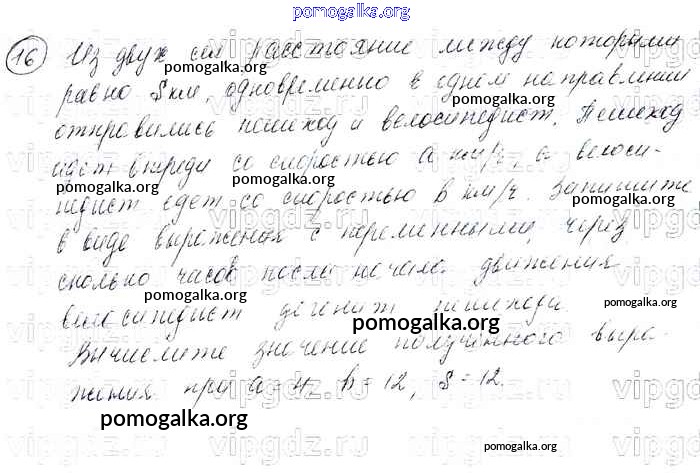 pomogalka.org
16 Из двух сел расстояние между которыми
pomogalka.org
равно S км, одновременно в одном направлении
pomogalka.org
отправились пешеход и велосипедист. Пешеход
pomogalka.org
идет впереди со скоростью a км/ч, а велоси-
pomogalka.org
pomogalka.org
педист едет со скоростью b км/ч. Запишите
pomogalka.org
в виде выражения с переменными, через
сколько часов после начала движения
pomogalka.org
велосипедист догонит пешехода.
pomogalka.org
pomogalka.org
Вычислите значение полученного выра-
жения при a = 4, b = 12, S = 12.
pomogalka.org
pomogalka.org
pomogalka.org